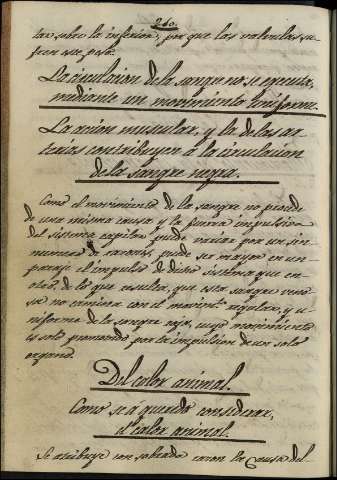 260.
lar sobre la inferior, por que las valvulas su-
fren este peso.
La circulacion de la sangre no se egecuta,
mediante un movimiento uniforme.
La acion muscular, y la de las ar-
terias contribuyen á la circulacion
de la sangre negra.
Como el movimiento de la sangre no pende
de una misma causa y la fuerza impulsiva
del sistema capilar puede variar por un sin
numero de razones, puede ser mayor en un
parage el impulso de dicho sistema que en
otro: de lo que resulta, que esta sangre veno-
sa no camina con el movimto. regular, y u-
niforme de la sangre roja, cuyo movimiento
es solo promovido por la impulsion de un solo
organo.
Del calor animal.
Como se á querido considerar,
el calor animal.
Se atribuye con sobrada razon la causa del